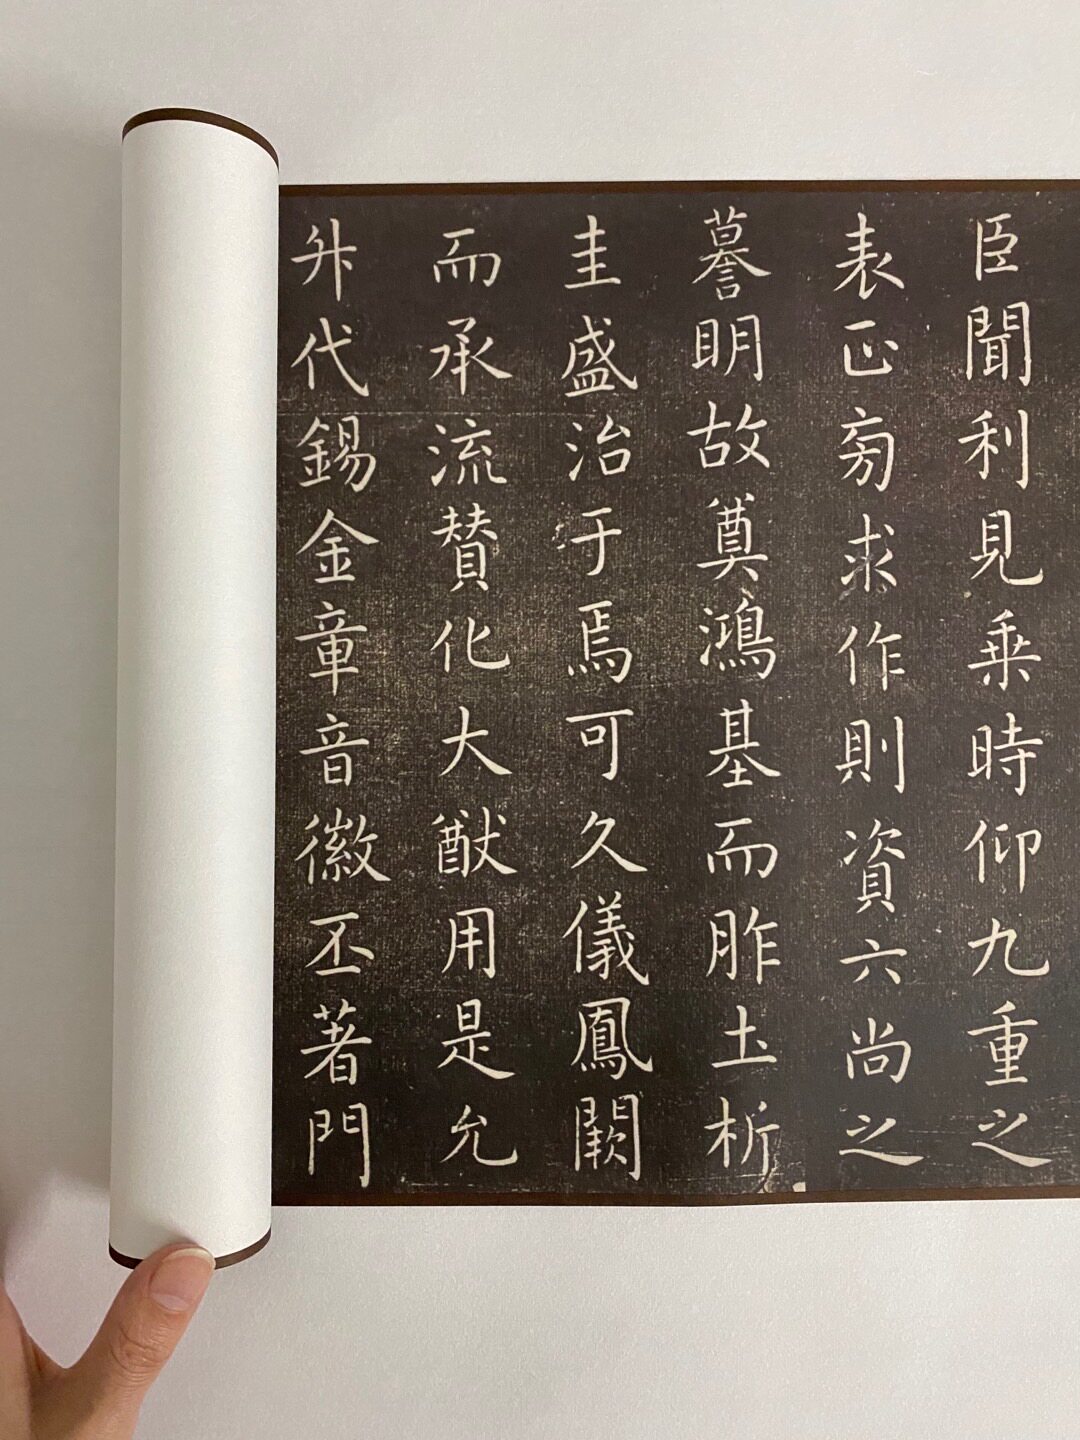 臣聞利見乘時仰九重之
表正旁求作則資六尚之
謩明故奠鴻基而胙土析
圭盛治于焉可久儀鳳闕
而承流賛化大猷用是允
升代錫金章音徽丕著門